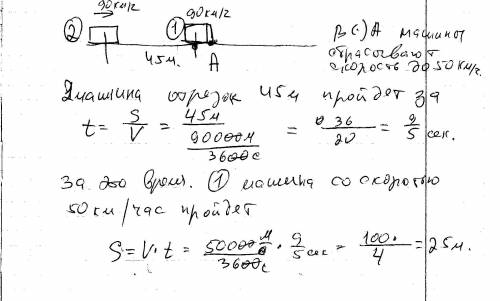 90км/г 90км/г
② ① В (·) A машины
сбрасывают
скорость до 50 км/г.
45м. A
2 машина отрезок 45м пройдет за
t = S/V = 45м / (90000м/3600с) = 36/20 = 9/5 сек.
За это время. ① машина со скоростью
50 км/час пройдет
S = V·t = 50000м/3600с · 9/5 сек = 100/4 = 25м.